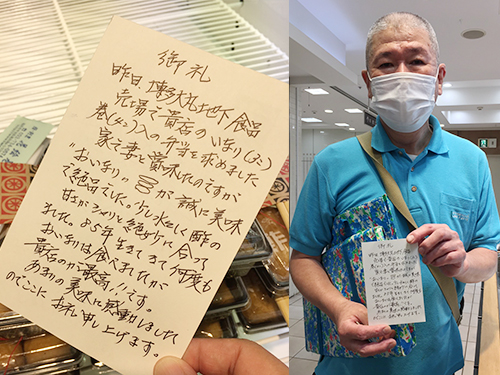 御礼
昨日、博多大丸地下食品
売場で貴店のいなり(3ケ)
巻(4ケ)入の弁当を求めました
家で妻と賞味したのですが
"おいなり" が誠に美味
で絶品でした。少し 酢の
甘さがシャリと絶妙に合って
85年生きてきて何度も
おいなりは食べましたが
貴店のが最高!!です。
あまりの美味に感動しました
のでここに お礼申し上げます。